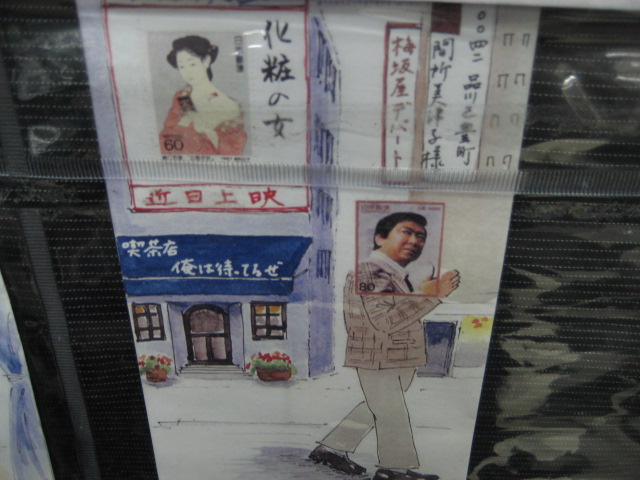 化粧の女
日本郵便
60
近日上映
喫茶店
俺は待ってるぜ
〇〇四二 品川区豊町
間所美津子様
梅坂屋デパート
80